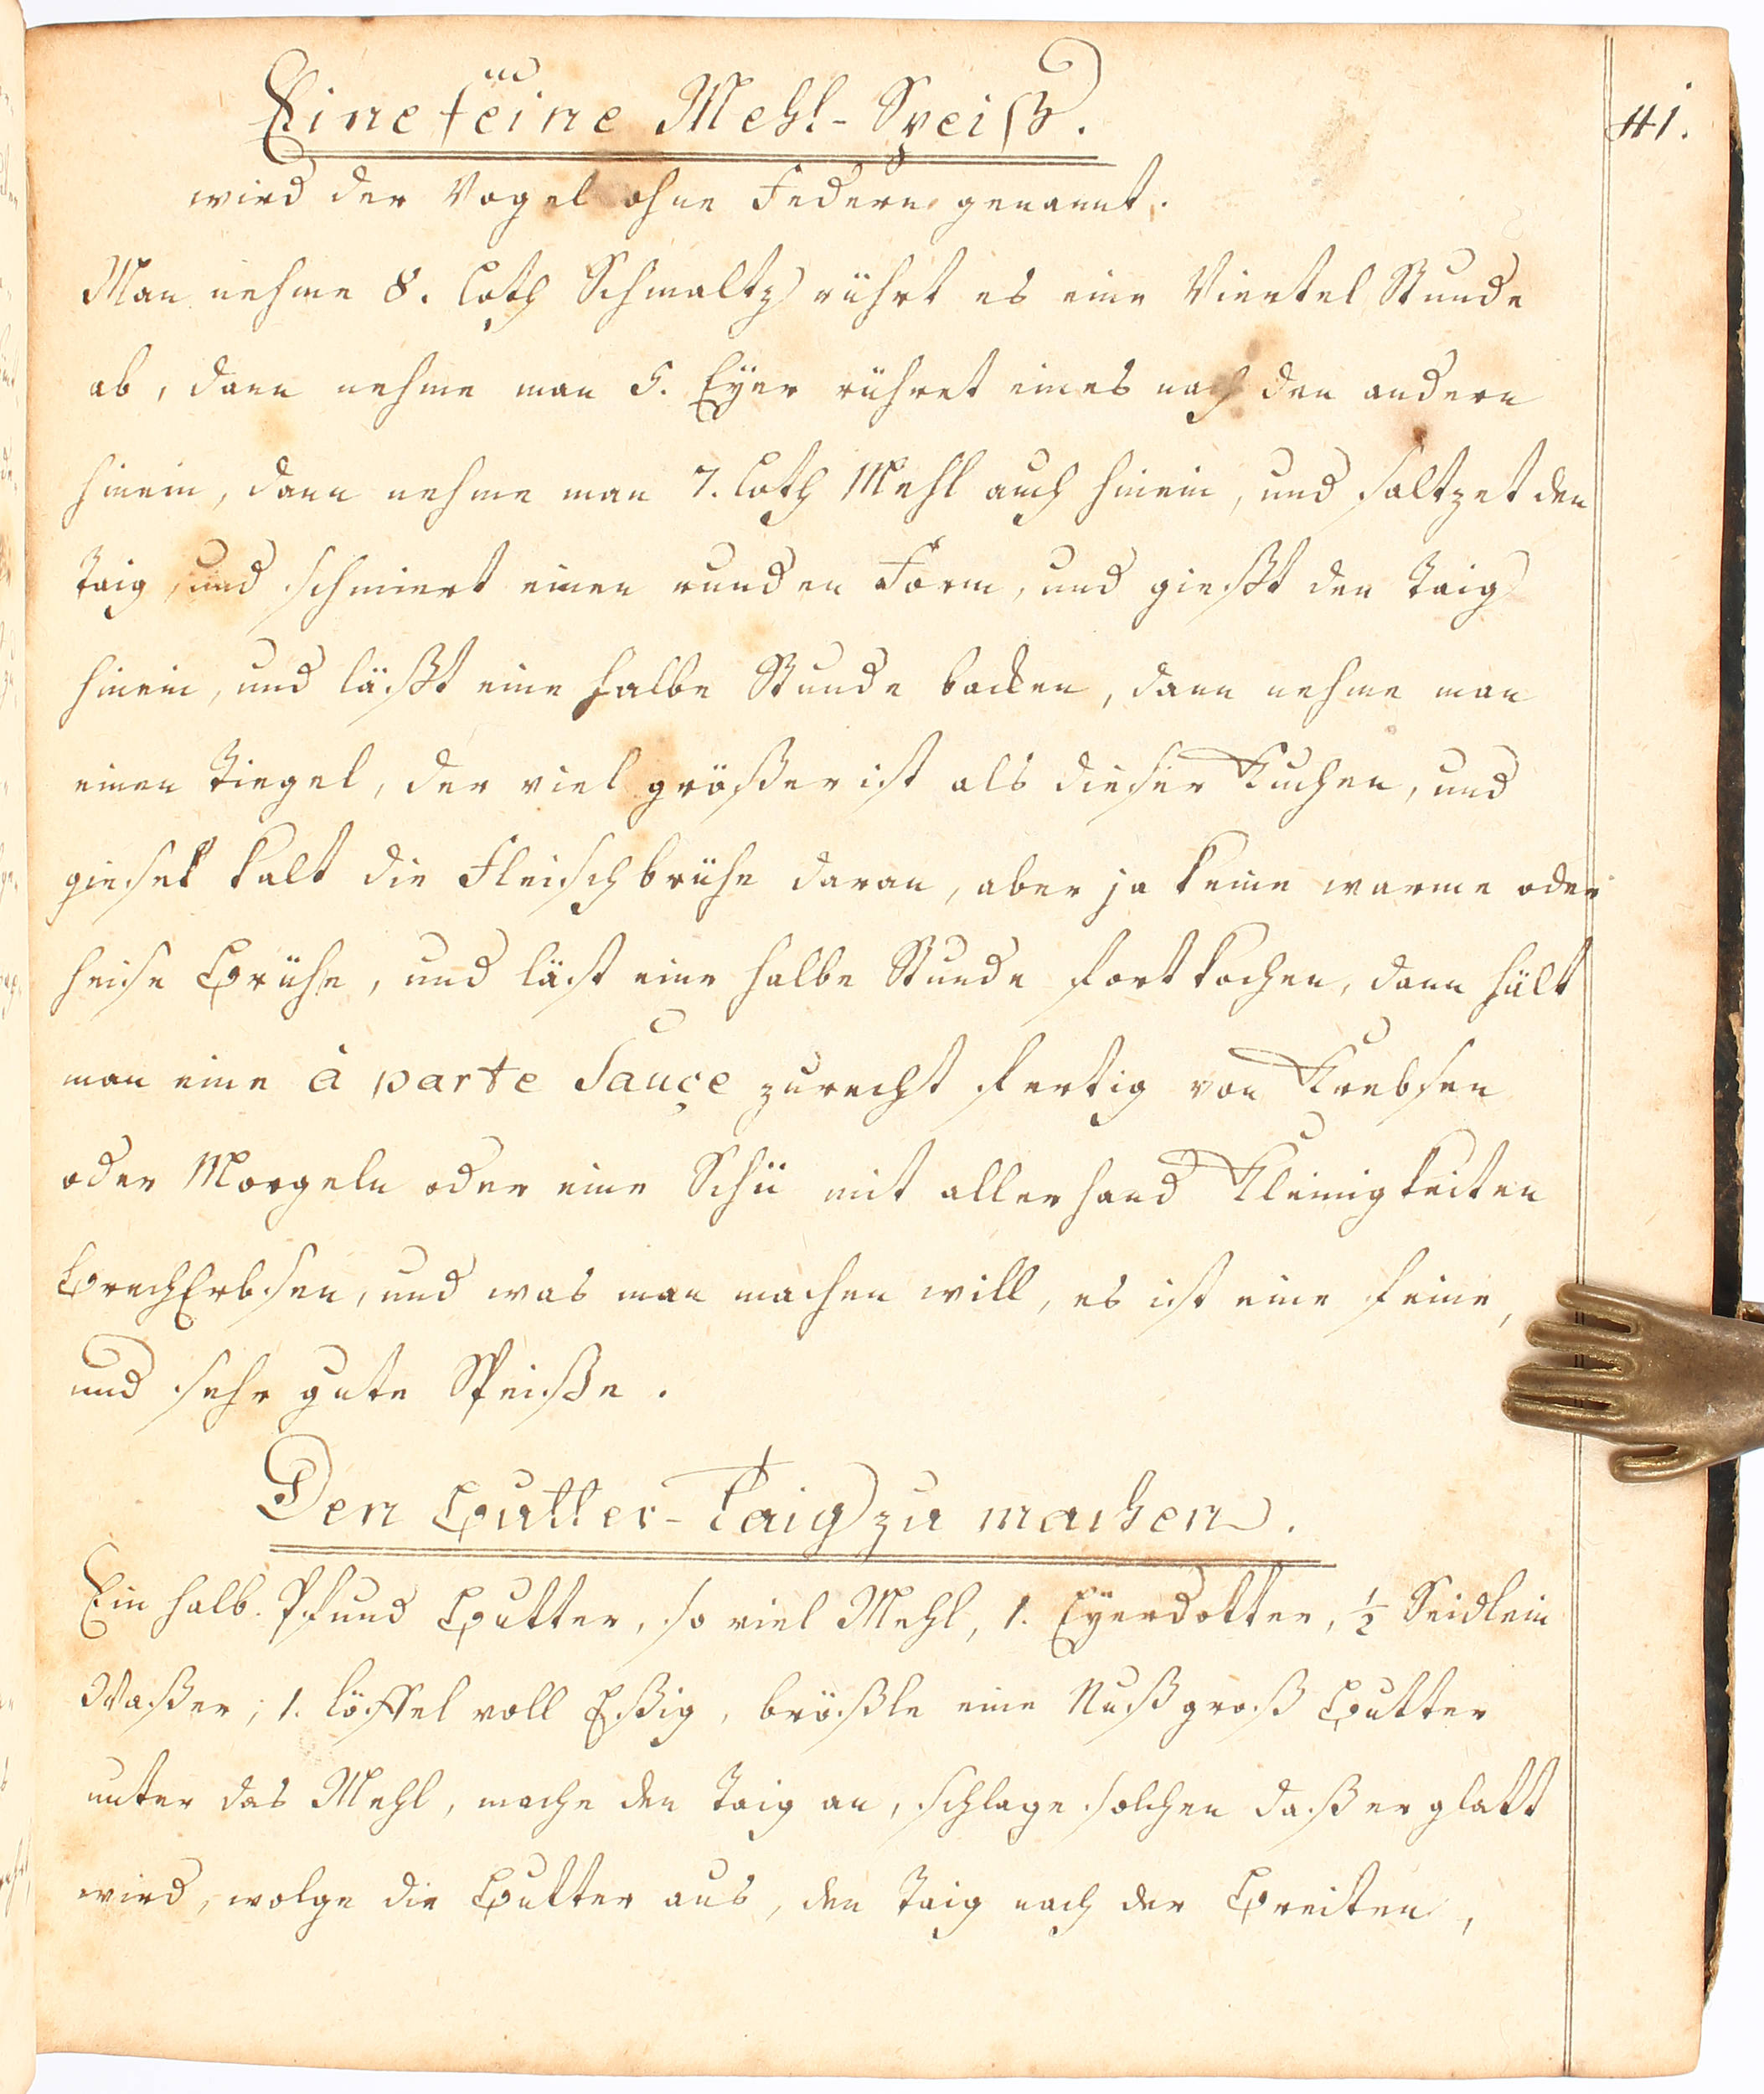 Eine feine Mehl-Speiß.
41.
wird der Vogel ohne Federn genannt.
Man nehme 8. Loth Schmaltz rührt es eine Viertel Stunde
ab, dann nehme man 5. Eÿer rühret eines nach den andern
hinein, dann nehme man 7. Loth Mehl auch hinein, und saltzet den
Taig, und schmiert einen runden Form, und gießt den Taig
hinein, und läßt eine halbe Stunde backen, dann nehme man
einen Tiegel, der viel größer ist als dieser Kuchen, und
gieset kalt die Fleischbrühe daran, aber ja keine warme oder
heise Brühe, und läst eine halbe Stunde fort kochen, dann hält
man eine à parte Sauçe zurecht fertig von Krebsen
oder Morgeln oder eine Schü mit allerhand Kleinigkeiten
BrechErbsen, und was man machen will, es ist eine feine,
und sehr gute Speiße.
Den Butter-Taig zu machen.
Ein halb. Pfund Butter, so viel Mehl, 1. Eÿerdotter, ½ Seidlein
Waßer; 1. Löffel voll Eßig, brößle eine Nuß groß Butter
unter das Mehl, mache den Taig an, schlage solchen daß er glatt
wird, wolge die Butter aus, den Taig nach der Breiten,